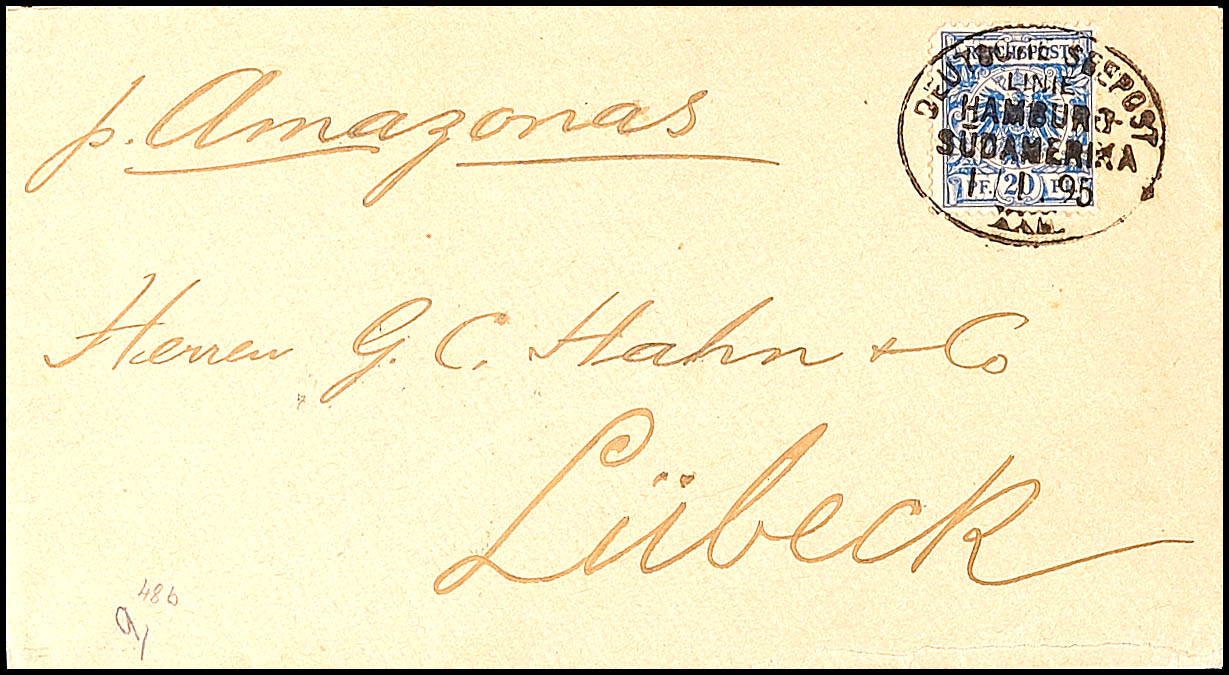 p. Amazonas
REICHSPOST
PF. 20 PF.
DEUTSCHE SEEPOST
LINIE
HAMBURG-
SÜDAMERIKA
1 1. 95
Herren G. C. Hahn & Co
Lübeck
48b